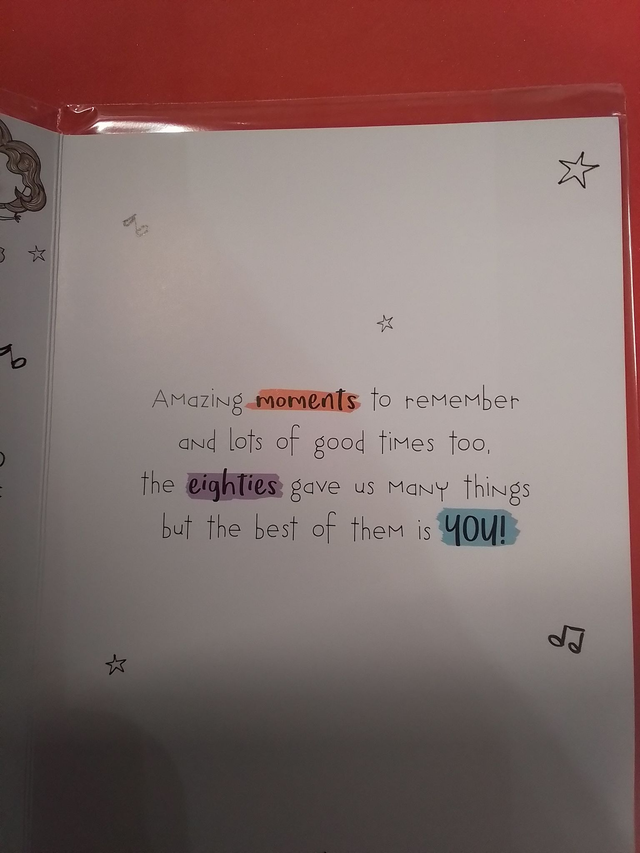 Amazing moments to remember
and lots of good times too,
the eighties gave us many things
but the best of them is YOU!